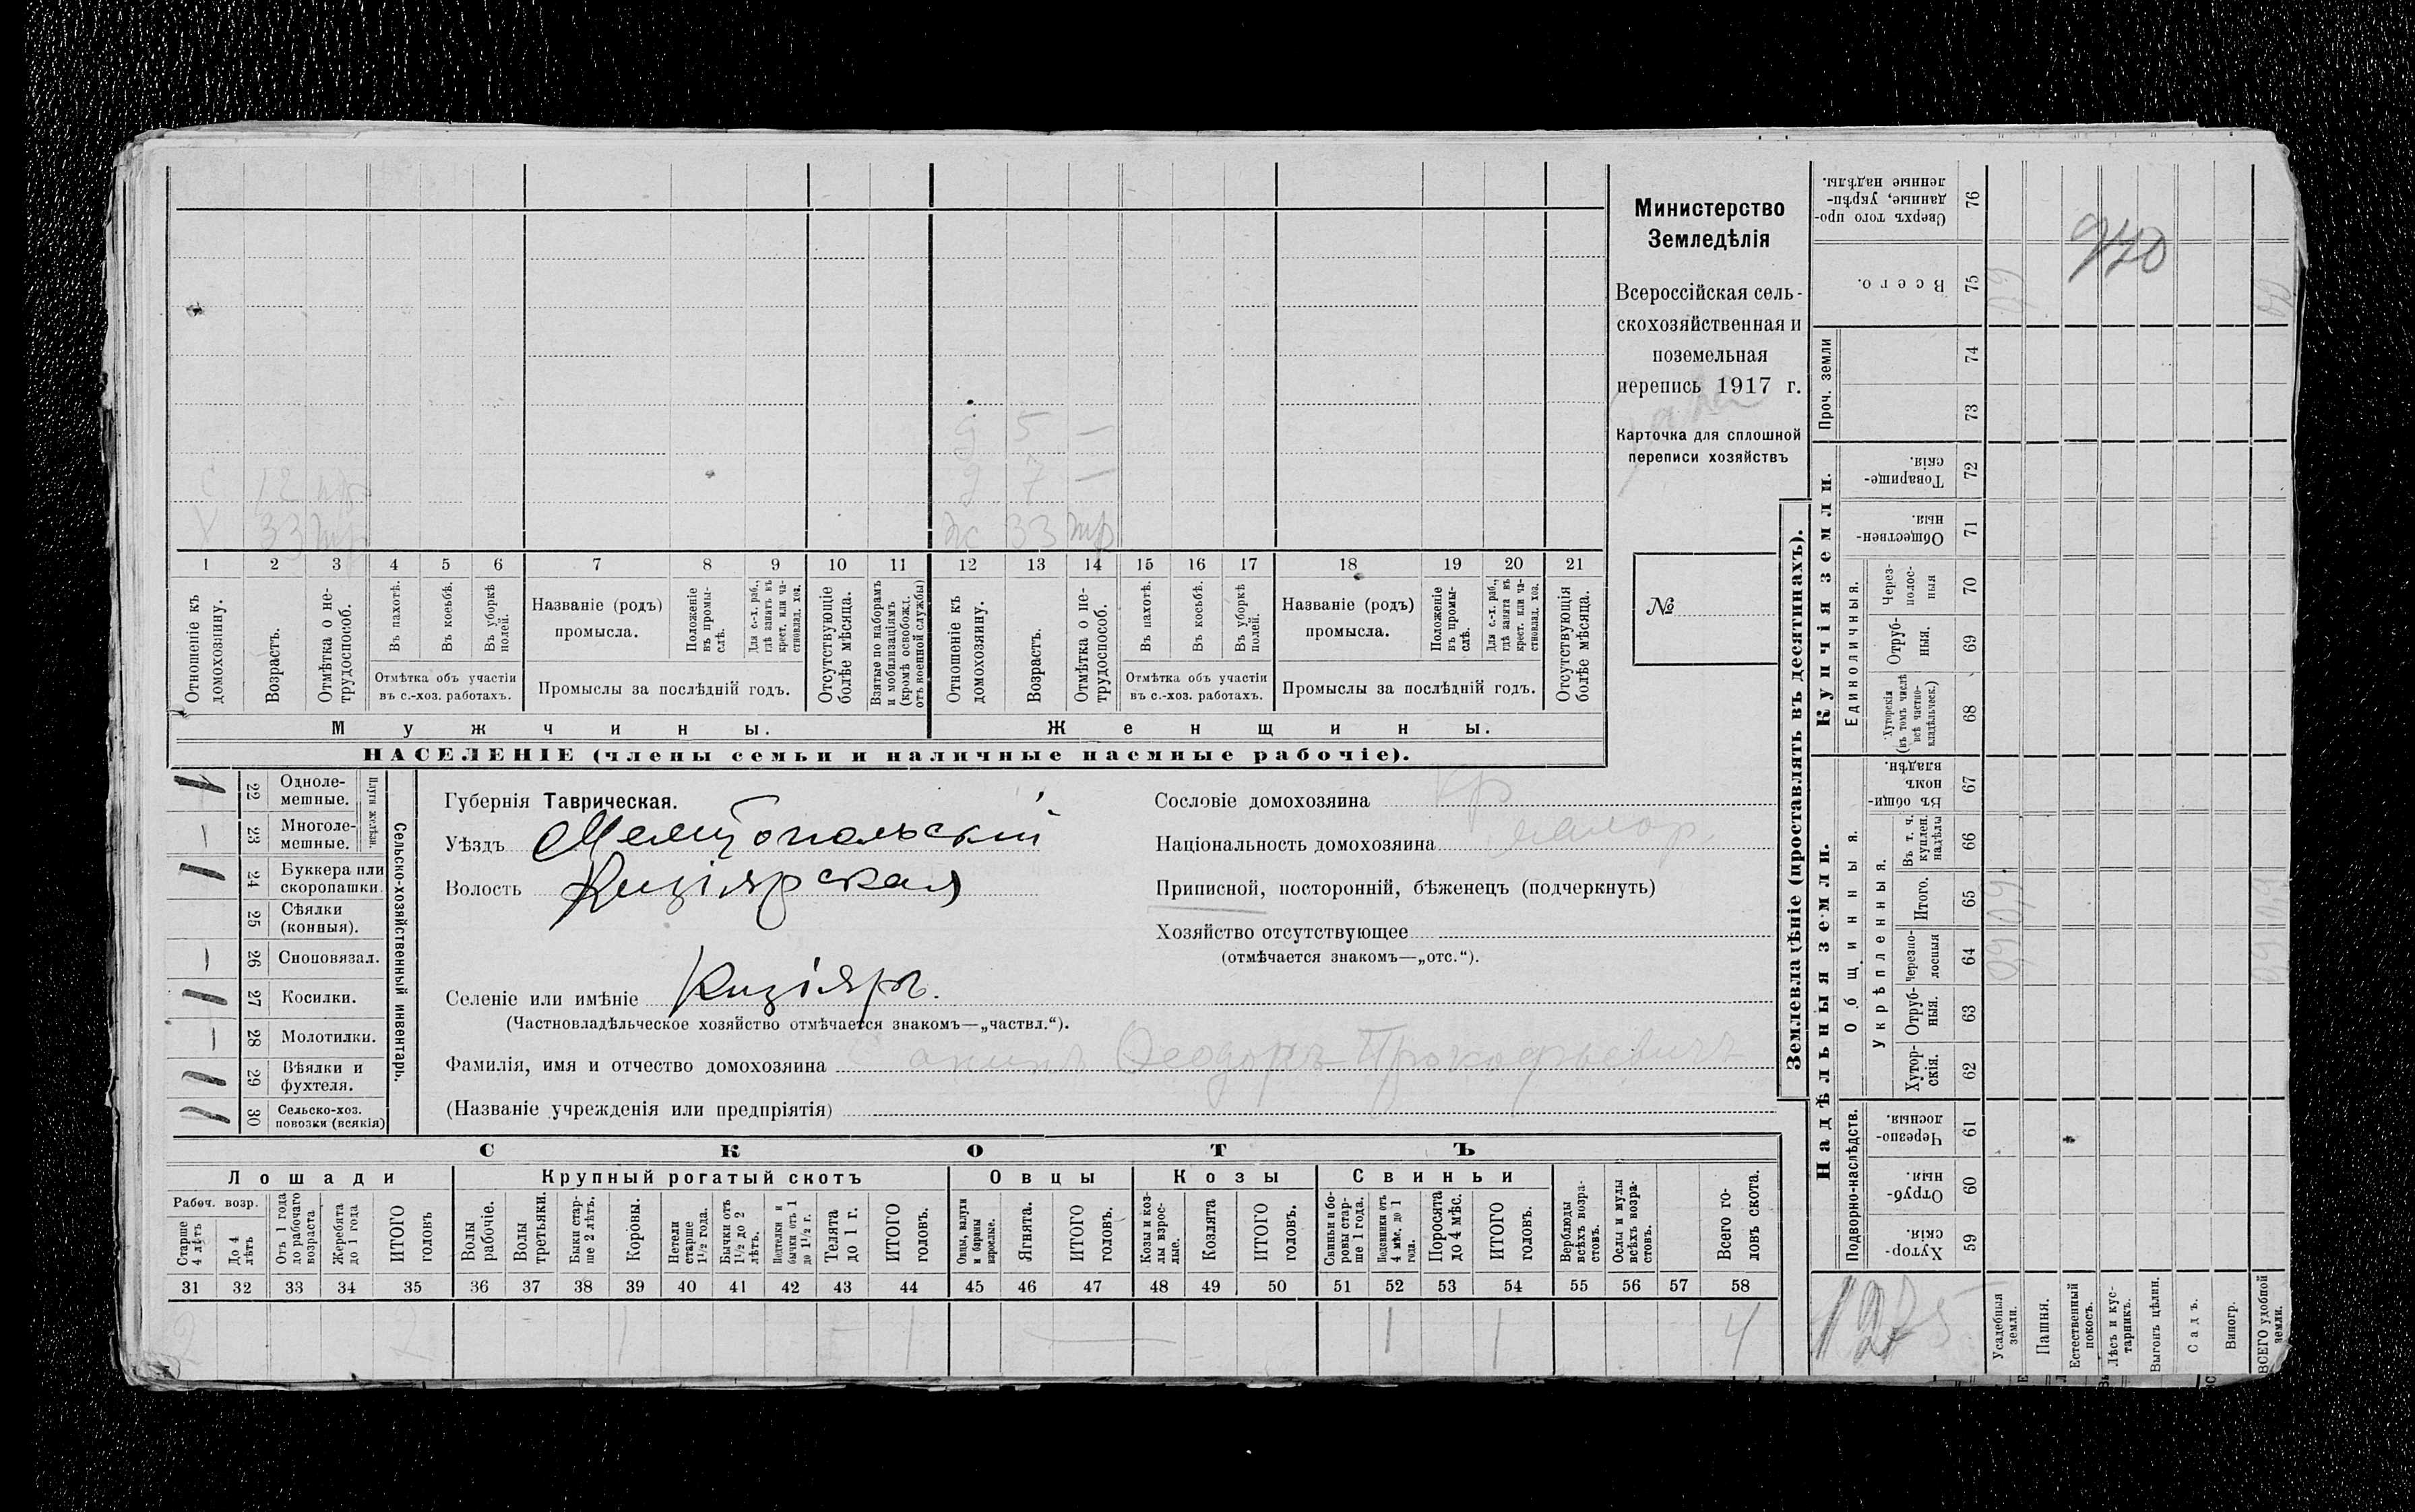 Министерство
Земледѣлія
Всероссійская сель-
скохозяйственная и
поземельная
перепись 1917 г.
Карточка для сплошной
переписи хозяйствъ
№
940
с 12 нр
х 33 тр
д 5 —
д 7 —
ж 33 тр
1 2 3 4 5 6 7 8 9 10 11 12 13 14 15 16 17 18 19 20 21
Отношеніе къ домохозяину.
Возрастъ.
Отмѣтка о не-трудоспособ.
Въ пахотѣ.
Въ косьбѣ.
Въ уборкѣ полей.
Отмѣтка объ участіи
въ с.-хоз. работахъ.
Названіе (родъ)
промысла.
Положеніе въ промы-слѣ.
Для с.-х. раб., гдѣ занятъ въ крест. или ча-стновлад. хоз.
Промыслы за послѣдній годъ.
Отсутствующіе болѣе мѣсяца.
Взятые по наборамъ и мобилизаціямъ (кромѣ освобожд. отъ военной службы)
Отношеніе къ домохозяину.
Возрастъ.
Отмѣтка о не-трудоспособ.
Въ пахотѣ.
Въ косьбѣ.
Въ уборкѣ полей.
Отмѣтка объ участіи
въ с.-хоз. работахъ.
Названіе (родъ)
промысла.
Положеніе въ промы-слѣ.
Для с.-х. раб., гдѣ занята въ крест. или ча-стновлад. хоз.
Промыслы за послѣдній годъ.
Отсутствующія болѣе мѣсяца.
Мужчины.
Женщины.
НАСЕЛЕНІЕ (члены семьи и наличные наемные рабочіе).
Сельско-хозяйственный инвентарь.
Плуги желѣзн.
22 Одноле-мешные. 1
23 Многоле-мешные. —
24 Буккера или скоропашки. 1
25 Сѣялки (конныя).
26 Сноповязал. —
27 Косилки. 1
28 Молотилки. —
29 Вѣялки и фухтеля. 11
30 Сельско-хоз. повозки (всякія) 11
Губернія Таврическая.
Уѣздъ Мелитопольскій
Волость Кизіярская
Селеніе или имѣніе Кизіяръ.
(Частновладѣльческое хозяйство отмѣчается знакомъ—„частвл.“).
Фамилія, имя и отчество домохозяина Феодоръ Прокофьевичъ
(Названіе учрежденія или предпріятія)
Сословіе домохозяина кр
Національность домохозяина малор.
Приписной, посторонній, бѣженецъ (подчеркнуть)
Хозяйство отсутствующее
(отмѣчается знакомъ—„отс.“).
СКОТЪ
Лошади
Крупный рогатый скотъ
Овцы
Козы
Свиньи
Рабоч. возр.
Старше 4 лѣтъ
До 4 лѣтъ
Отъ 1 года до рабочаго возраста
Жеребята до 1 года
ИТОГО головъ
Волы рабочіе.
Волы третьяки.
Быки стар-ше 2 лѣтъ.
Коровы.
Нетели старше 1½ года.
Бычки отъ 1½ до 2 лѣтъ.
Подтелки и бычки отъ 1 до 1½ г.
Телята до 1 г.
ИТОГО головъ.
Овцы, валухи и бараны взрослые.
Ягнята.
ИТОГО головъ.
Козы и коз-лы взрос-лые.
Козлята
ИТОГО головъ.
Свиньи и бо-ровы стар-ше 1 года.
Подсвинки отъ 4 мѣс. до 1 года.
Поросята до 4 мѣс.
ИТОГО головъ.
Верблюды всѣхъ возра-стовъ.
Ослы и мулы всѣхъ возра-стовъ.
Всего го-ловъ скота.
31 32 33 34 35 36 37 38 39 40 41 42 43 44 45 46 47 48 49 50 51 52 53 54 55 56 57 58
2 2 1 — 1 — 1 1 4
Землевладѣніе (проставлять въ десятинахъ).
Купчія земли.
Надѣльныя земли.
Сверхъ того про-данные, укрѣп-ленные надѣлы. 76
Всего. 75
Проч. земли 74 73
Товарище-скія. 72
Обществен-ныя. 71
Единоличныя.
Через-полос-ныя 70
Отруб-ныя. 69
Хуторскія (въ томъ числѣ всѣ частно-владѣльческ.) 68
Общинныя.
Въ общи-номъ владѣн. 67
Укрѣпленныя.
Въ т. ч. куплен. надѣлы 66
Итого. 65
Черезпо-лосныя 64
Отруб-ныя. 63
Хутор-скія. 62
Подворно-наслѣдств.
Черезпо-лосныя 61
Отруб-ныя. 60
Хутор-скія. 59
0,9 0,9 0,9
0,9 0,9
Усадебныя земли.
Пашня.
Естественный покосъ.
Лѣсъ и кус-тарникъ.
Выгонъ цѣлин.
Садъ.
Виногр.
ВСЕГО удобной земли.